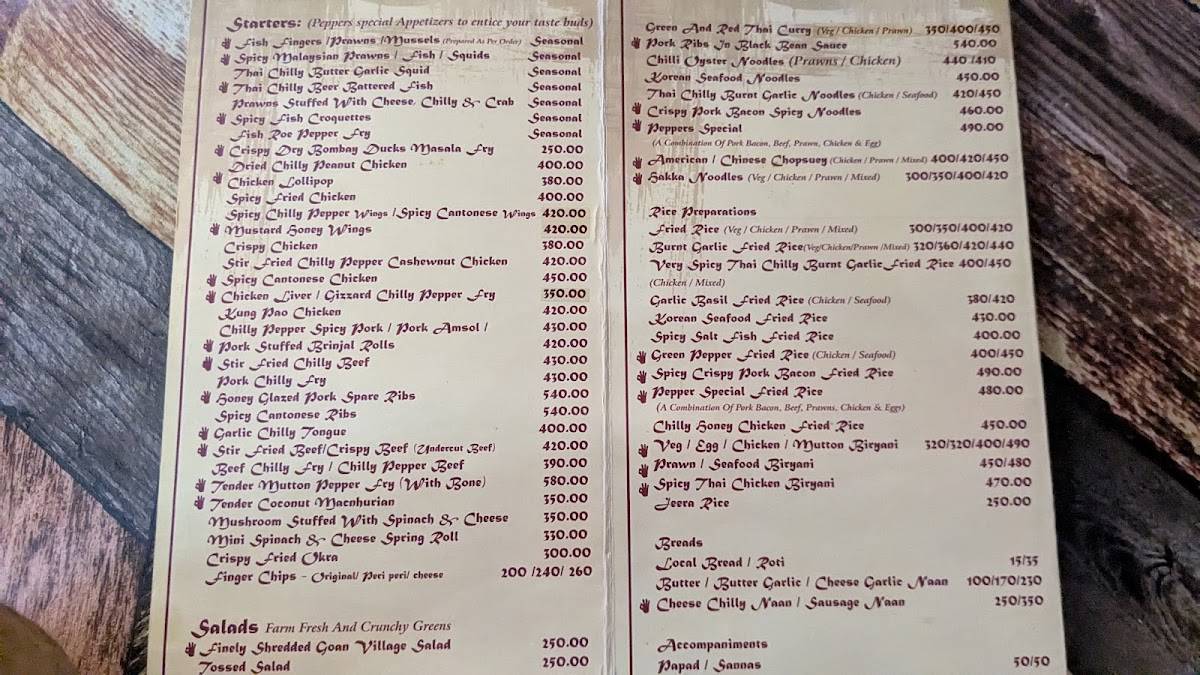 Starters: (Peppers special Appetizers to entice your taste buds)
Fish Fingers /Prawns /Mussels (Prepared As Per Order) Seasonal
Spicy Malaysian Prawns / Fish / Squids Seasonal
Thai Chilly Butter Garlic Squid Seasonal
Thai Chilly Beer Battered Fish Seasonal
Prawns Stuffed With Cheese, Chilly & Crab Seasonal
Spicy Fish Croquettes Seasonal
Fish Roe Pepper Fry Seasonal
Crispy Dry Bombay Ducks Masala Fry 250.00
Dried Chilly Peanut Chicken 400.00
Chicken Lollipop 380.00
Spicy Fried Chicken 400.00
Spicy Chilly Pepper Wings /Spicy Cantonese Wings 420.00
Mustard Honey Wings 420.00
Crispy Chicken 380.00
Stir Fried Chilly Pepper Cashewnut Chicken 420.00
Spicy Cantonese Chicken 450.00
Chicken Liver / Gizzard Chilly Pepper Fry 350.00
Kung Pao Chicken 420.00
Chilly Pepper Spicy Pork / Pork Amsol / 430.00
Pork Stuffed Brinjal Rolls 420.00
Stir Fried Chilly Beef 430.00
Pork Chilly Fry 430.00
Honey Glazed Pork Spare Ribs 540.00
Spicy Cantonese Ribs 540.00
Garlic Chilly Tongue 400.00
Stir Fried Beef/Crispy Beef (Undercut Beef) 420.00
Beef Chilly Fry / Chilly Pepper Beef 390.00
Tender Mutton Pepper Fry (With Bone) 580.00
Tender Coconut Macnhurian 350.00
Mushroom Stuffed With Spinach & Cheese 350.00
Mini Spinach & Cheese Spring Roll 330.00
Crispy Fried Okra 300.00
Finger Chips - Original/ Peri peri/ cheese 200 /240/ 260
Salads Farm Fresh And Crunchy Greens
Finely Shredded Goan Village Salad 250.00
Tossed Salad 250.00
Green And Red Thai Curry (Veg / Chicken / Prawn) 350/400/450
Pork Ribs In Black Bean Sauce 540.00
Chilli Oyster Noodles (Prawns / Chicken) 440 /410
Korean Seafood Noodles 450.00
Thai Chilly Burnt Garlic Noodles (Chicken / Seafood) 420/450
Crispy Pork Bacon Spicy Noodles 460.00
Peppers Special 490.00
(A Combination Of Pork Bacon, Beef, Prawn, Chicken & Egg)
American / Chinese Chopsuey (Chicken / Prawn / Mixed) 400/420/450
Hakka Noodles (Veg / Chicken / Prawn / Mixed) 300/350/400/420
Rice Preparations
Fried Rice (Veg / Chicken / Prawn / Mixed) 300/350/400/420
Burnt Garlic Fried Rice(Veg/Chicken/Prawn /Mixed) 320/360/420/440
Very Spicy Thai Chilly Burnt Garlic Fried Rice 400/450
(Chicken / Mixed)
Garlic Basil Fried Rice (Chicken / Seafood) 380/420
Korean Seafood Fried Rice 430.00
Spicy Salt Fish Fried Rice 400.00
Green Pepper Fried Rice (Chicken / Seafood) 400/450
Spicy Crispy Pork Bacon Fried Rice 490.00
Pepper Special Fried Rice 480.00
(A Combination Of Pork Bacon, Beef, Prawns, Chicken & Eggs)
Chilly Honey Chicken Fried Rice 450.00
Veg / Egg / Chicken / Mutton Biryani 320/320/400/490
Prawn / Seafood Biryani 450/480
Spicy Thai Chicken Biryani 470.00
Jeera Rice 250.00
Breads
Local Bread / Roti 15/35
Butter / Butter Garlic / Cheese Garlic Naan 100/170/230
Cheese Chilly Naan / Sausage Naan 250/350
Accompaniments
Papad / Sannas 50/50